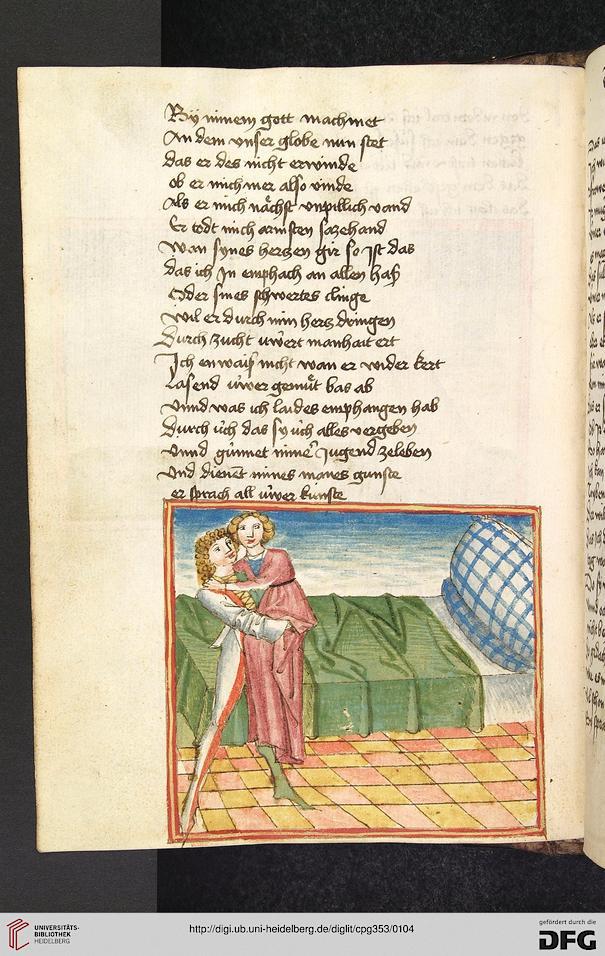 Bÿ minem gott machmet
An dem vnser globe nun stet
das er des nicht erwinde
ob er mich mer also vinde
Als er mich nächst vnpillich vand
Er todt mich armsten sazehand
Wan synes herzen gir so Ist das
das ich In emphach an allen haß
Oder sines schwertes clinge
Wil er durch min herz dringen
Durch zucht üwert manhait ert
Ich enwaiß nicht wan er wider kert
Lasend üwer gemüt bas ab
Vnnd was ich laides emphangen hab
Durch üch das sÿ üch alles vergeben
Vnnd günnet miner Jugend zeleben
Vnd dienet mines manes gunste
er sprach all üwer künste
UNIVERSITÄTS-
BIBLIOTHEK
HEIDELBERG
http://digi.ub.uni-heidelberg.de/diglit/cpg353/0104
gefördert durch die
DFG